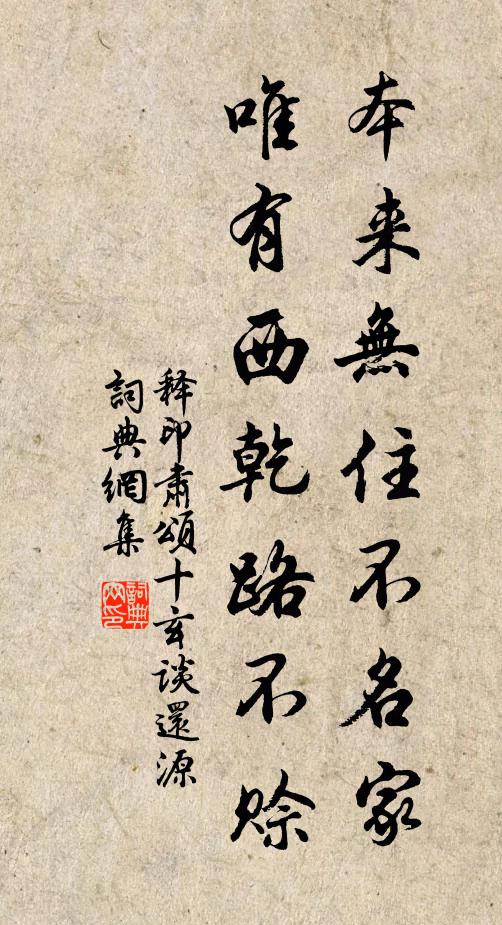 本来無住不名家
唯有西乾路不賒
释印肃頌十玄谈還源
詞典網集
詞典網印